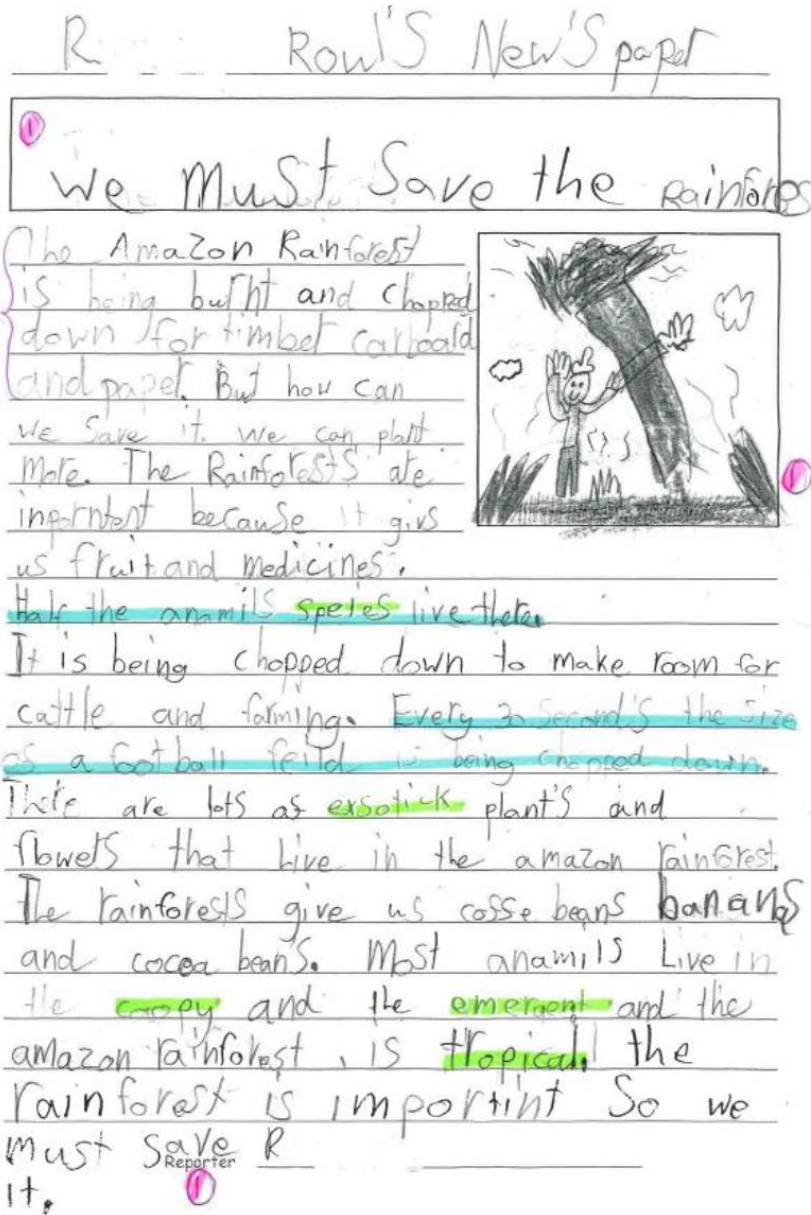 R Rowl'S New'S paper
We Must Save the Rainfores
The Amazon Rainforest
is being burnt and chopped
down for timber carboard
and paper. But how can
we save it. we can plant
more. The Rainforests are
inporntent because it givs
us fruit and medicines.
Half the anamils speies live there.
It is being chopped down to make room for
cattle and farming. Every 30 second's the size
os a football feild is being chopped down.
There are lots as exsotick plant's and
flowers that live in the amazon rainforest.
The rainforests give us cosse beans bananas
and cocoa beans. Most anamils Live in
the canopy and the emergent and the
amazon rainforest, is tropical. the
rainforest is importint So we
must save R
Reporter
it.